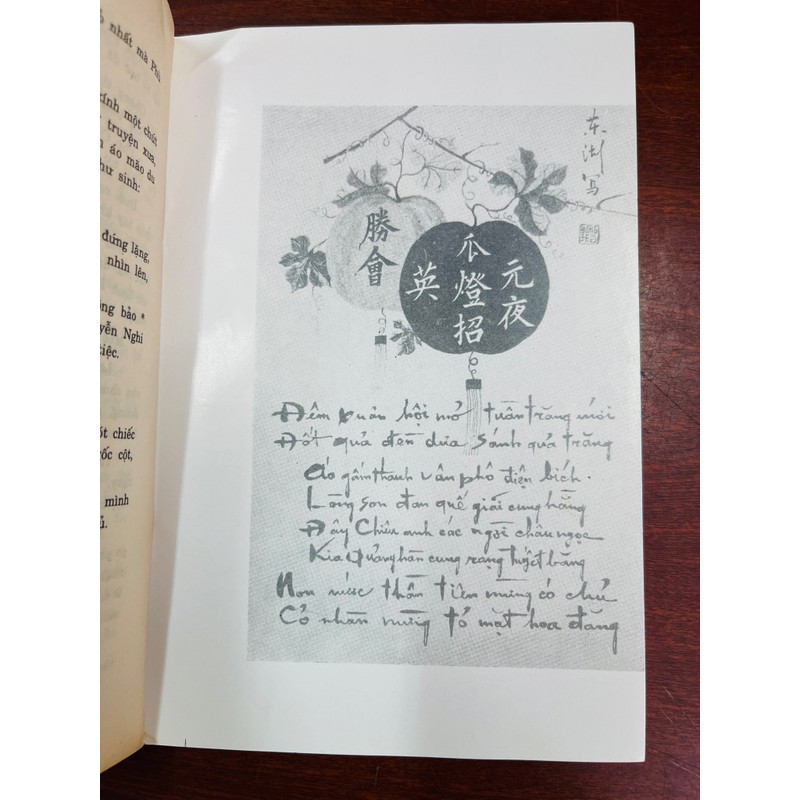 nhất mà Phù
kính một chút
truyện xưa,
áo mão du
như sinh:
đứng lặng,
nhìn lên,
bảo *
yễn Nghi
tiệc.
chiếc
cột,
mình
东湖写
元夜
瓜燈招
英
勝會
Đêm xuân hội mở tuần trăng mới
Đốt quả đèn dưa sánh quả trăng
Áo gấm thanh vân phô điện bích.
Lòng son đan quế giải cung hằng
Đây Chiêu anh các ngời châu ngọc
Kia Quảng hàn cung rạng tuyết băng
Non nước thần tiên mừng có chủ
Cố nhân mừng tỏ mặt hoa đăng